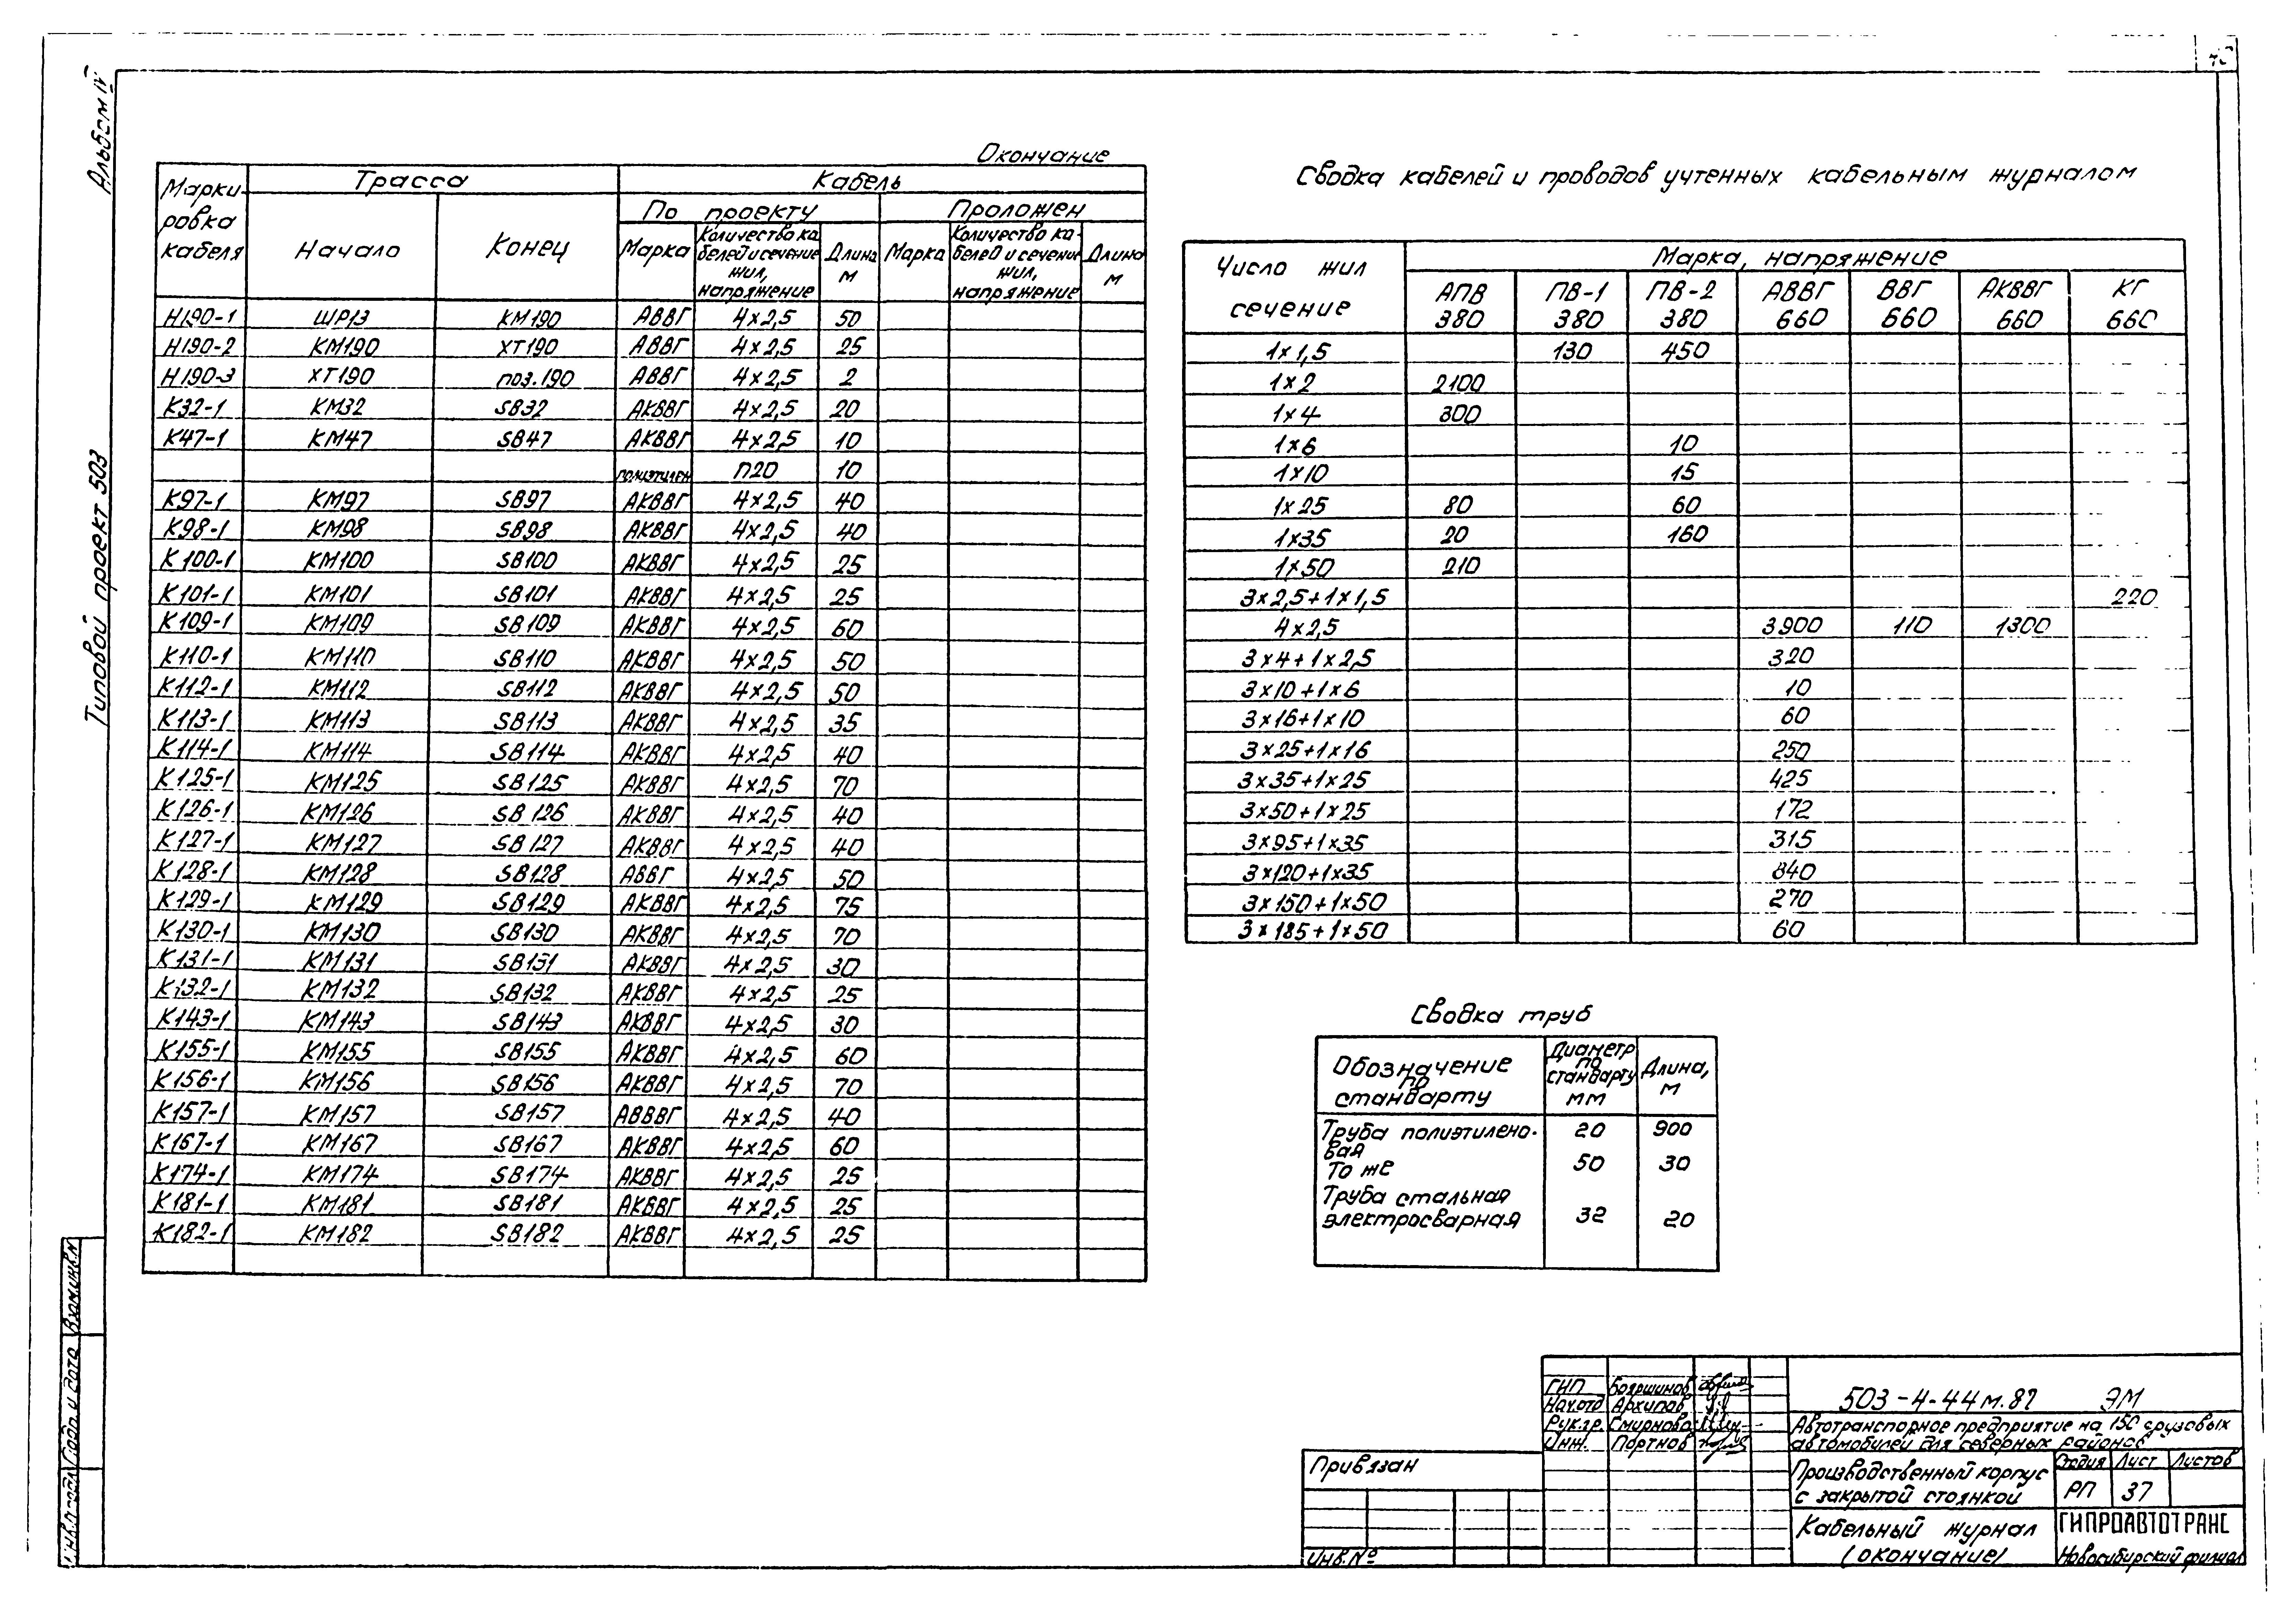 Альбом IV
Типовой проект 503
Окончание
Марки-
ровка
кабеля
Трасса
Кабель
Начало
Конец
По проекту
Проложен
Марка
Количество ка
белей и сечение
жил,
напряжение
Длина
м
Марка
Количество ка-
белей и сечение
жил,
напряжение
Длина
м
Н190-1 ШР13 КМ190 АВВГ 4×2,5 50
Н190-2 КМ190 ХТ190 АВВГ 4×2,5 25
Н190-3 ХТ190 поз.190 АВВГ 4×2,5 2
К32-1 КМ32 SB32 АКВВГ 4×2,5 20
К47-1 КМ47 SB47 АКВВГ 4×2,5 10
полиэтилен П20 10
К97-1 КМ97 SB97 АКВВГ 4×2,5 40
К98-1 КМ98 SB98 АКВВГ 4×2,5 40
К100-1 КМ100 SB100 АКВВГ 4×2,5 25
К101-1 КМ101 SB101 АКВВГ 4×2,5 25
К109-1 КМ109 SB109 АКВВГ 4×2,5 60
К110-1 КМ110 SB110 АКВВГ 4×2,5 50
К112-1 КМ112 SB112 АКВВГ 4×2,5 50
К113-1 КМ113 SB113 АКВВГ 4×2,5 35
К114-1 КМ114 SB114 АКВВГ 4×2,5 40
К125-1 КМ125 SB125 АКВВГ 4×2,5 70
К126-1 КМ126 SB126 АКВВГ 4×2,5 40
К127-1 КМ127 SB127 АКВВГ 4×2,5 40
К128-1 КМ128 SB128 АВВГ 4×2,5 50
К129-1 КМ129 SB129 АКВВГ 4×2,5 75
К130-1 КМ130 SB130 АКВВГ 4×2,5 70
К131-1 КМ131 SB131 АКВВГ 4×2,5 30
К132-1 КМ132 SB132 АКВВГ 4×2,5 25
К143-1 КМ143 SB143 АКВВГ 4×2,5 30
К155-1 КМ155 SB155 АКВВГ 4×2,5 60
К156-1 КМ156 SB156 АКВВГ 4×2,5 70
К157-1 КМ157 SB157 АВВВГ 4×2,5 40
К167-1 КМ167 SB167 АКВВГ 4×2,5 60
К174-1 КМ174 SB174 АКВВГ 4×2,5 25
К181-1 КМ181 SB181 АКВВГ 4×2,5 25
К182-1 КМ182 SB182 АКВВГ 4×2,5 25
Сводка кабелей и проводов учтенных кабельным журналом
Число жил
сечение
Марка, напряжение
АПВ ПВ-1 ПВ-2 АВВГ ВВГ АКВВГ КГ
380 380 380 660 660 660 660
1×1,5 130 450
1×2 2100
1×4 300
1×6 10
1×10 15
1×25 80 60
1×35 20 160
1×50 210
3×2,5+1×1,5 220
4×2,5 3900 110 1300
3×4+1×2,5 320
3×10+1×6 10
3×16+1×10 60
3×25+1×16 250
3×35+1×25 425
3×50+1×25 172
3×95+1×35 315
3×120+1×35 840
3×150+1×50 270
3×185+1×50 60
Сводка труб
Обозначение
по
стандарту
Диаметр
по
стандарту
мм
Длина,
м
Труба полиэтилено-
вая 20 900
То же 50 30
Труба стальная
электросварная 32 20
ГИП Бояршинов
Нач.отд Архипов
Рук.гр. Смирнова
Инж. Портнов
503-4-44м.87 ЭМ
Автотранспортное предприятие на 150 грузовых
автомобилей для северных районов
Производственный корпус
с закрытой стоянкой
Стадия Лист Листов
РП 37
Кабельный журнал
(окончание)
ГИПРОАВТОТРАНС
Новосибирский филиал
Привязан
Инв.№
Взам.инв.№
Подп. и дата
Инв.№ подл